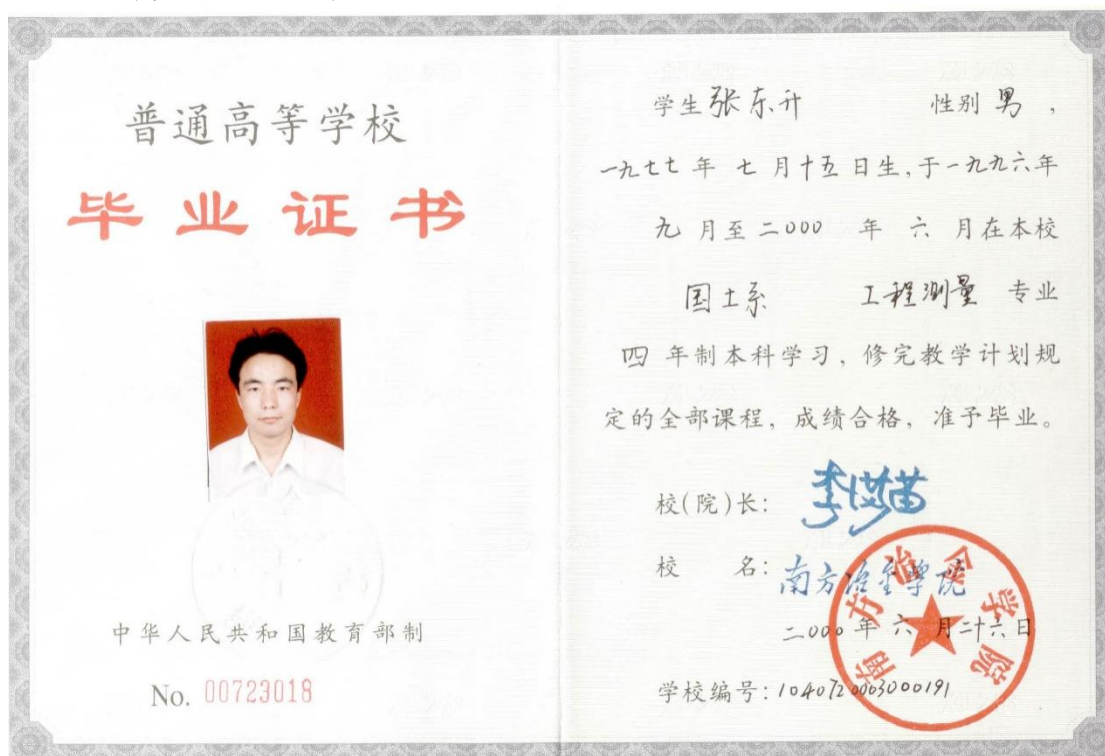 普通高等学校
毕业证书
中华人民共和国教育部制
No. 00723018
学生张东升 性别 男，
一九七七 年 七 月十五 日生，于一九九六年
九 月至二000 年 六 月在本校
国土系 工程测量 专业
四 年制本科学习，修完教学计划规
定的全部课程，成绩合格，准予毕业。
校(院)长：
校 名：南方冶金学院
二000 年 六 月二十六日
学校编号：1040720003000191
南方冶金学院